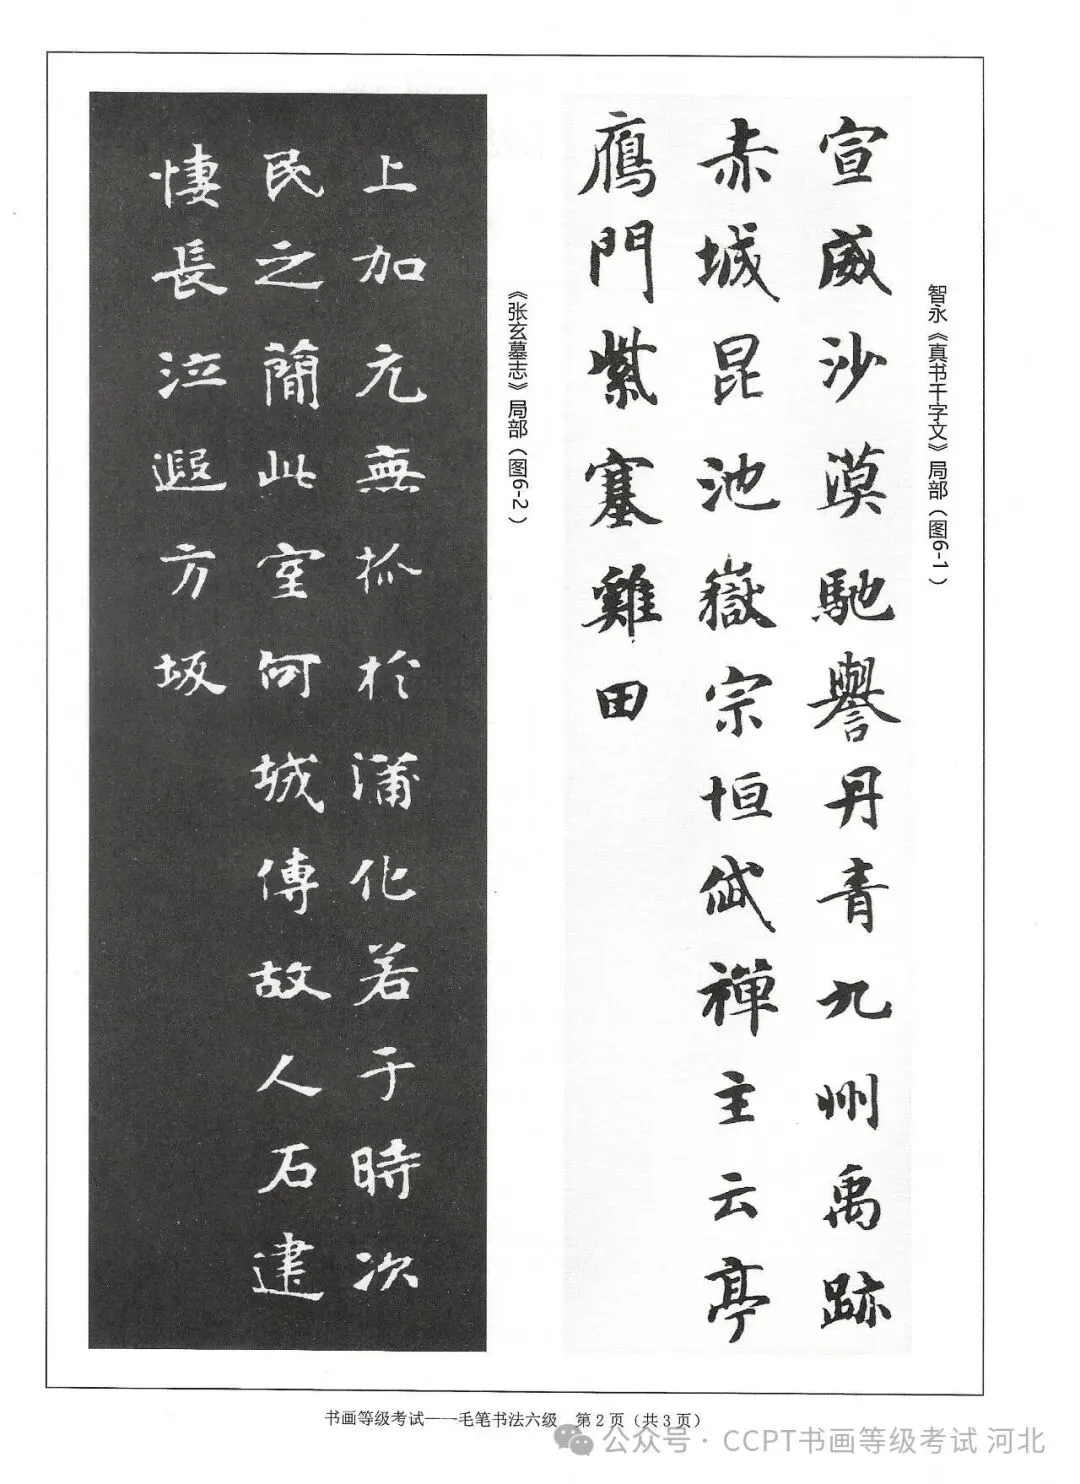 智永《真书千字文》局部（图6-1）
宣威沙漠馳譽丹青九州禹跡
赤城昆池嶽宗恒岱禪主云亭
鴈門紫塞雞田
《张玄墓志》局部（图6-2）
上加元無於蒲化若于時次
民之簡此室何城傳故人石建
悽長泣遐方坂
书画等级考试——毛笔书法六级 第2页（共3页）
公众号·CCPT书画等级考试 河北